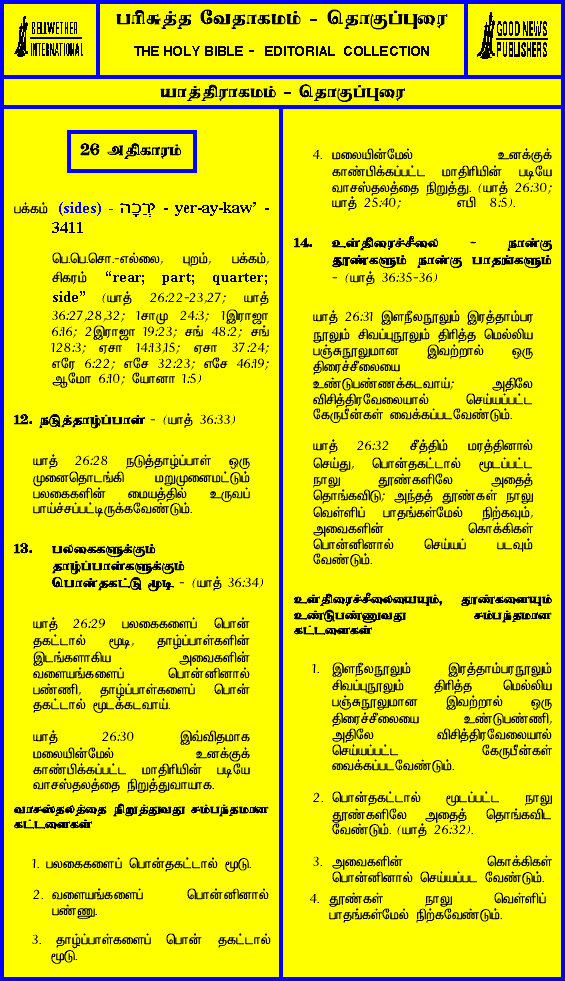 BELLWETHER
INTERNATIONAL
பரிசுத்த வேதாகமம் - தொகுப்புரை
THE HOLY BIBLE - EDITORIAL COLLECTION
GOOD NEWS
PUBLISHERS
யாத்திராகமம் - தொகுப்புரை
26 அதிகாரம்
பக்கம் (sides) - יְרֵכָה - yer-ay-kaw’ -
3411
பெ.பெ.சொ.-எல்லை, புறம், பக்கம்,
சிகரம் “rear; part; quarter;
side” (யாத் 26:22-23,27; யாத்
36:27,28,32; 1சாமு 24:3; 1இராஜா
6:16; 2இராஜா 19:23; சங் 48:2; சங்
128:3; ஏசா 14:13,15; ஏசா 37:24;
எரே 6:22; எசே 32:23; எசே 46:19;
ஆமோ 6:10; யோனா 1:5)
12. நடுத்தாழ்ப்பாள் - (யாத் 36:33)
யாத் 26:28 நடுத்தாழ்ப்பாள் ஒரு
முனைதொடங்கி மறுமுனைமட்டும்
பலகைகளின் மையத்தில் உருவப்
பாய்ச்சப்பட்டிருக்கவேண்டும்.
13. பலகைகளுக்கும்
தாழ்ப்பாள்களுக்கும்
பொன்தகட்டு மூடி - (யாத் 36:34)
யாத் 26:29 பலகைகளைப் பொன்
தகட்டால் மூடி, தாழ்ப்பாள்களின்
இடங்களாகிய அவைகளின்
வளையங்களைப் பொன்னினால்
பண்ணி, தாழ்ப்பாள்களைப் பொன்
தகட்டால் மூடக்கடவாய்.
யாத் 26:30 இவ்விதமாக
மலையின்மேல் உனக்குக்
காண்பிக்கப்பட்ட மாதிரியின் படியே
வாசஸ்தலத்தை நிறுத்துவாயாக.
வாசஸ்தலத்தை நிறுத்துவது சம்பந்தமான
கட்டளைகள்
1. பலகைகளைப் பொன்தகட்டால் மூடு.
2. வளையங்களைப் பொன்னினால்
பண்ணு.
3. தாழ்ப்பாள்களைப் பொன் தகட்டால்
மூடு.
4. மலையின்மேல் உனக்குக்
காண்பிக்கப்பட்ட மாதிரியின் படியே
வாசஸ்தலத்தை நிறுத்து. (யாத் 26:30;
யாத் 25:40; எபி 8:5).
14. உள்திரைச்சீலை - நான்கு
தூண்களும் நான்கு பாதங்களும்
- (யாத் 36:35-36)
யாத் 26:31 இளநீலநூலும் இரத்தாம்பர
நூலும் சிவப்புநூலும் திரித்த மெல்லிய
பஞ்சுநூலுமான இவற்றால் ஒரு
திரைச்சீலையை
உண்டுபண்ணக்கடவாய்; அதிலே
விசித்திரவேலையால் செய்யப்பட்ட
கேருபீன்கள் வைக்கப்படவேண்டும்.
யாத் 26:32 சீத்திம் மரத்தினால்
செய்து, பொன்தகட்டால் மூடப்பட்ட
நாலு தூண்களிலே அதைத்
தொங்கவிடு; அந்தத் தூண்கள் நாலு
வெள்ளிப் பாதங்கள்மேல் நிற்கவும்,
அவைகளின் கொக்கிகள்
பொன்னினால் செய்யப் படவும்
வேண்டும்.
உள்திரைச்சீலையையும், தூண்களையும்
உண்டுபண்ணுவது சம்பந்தமான
கட்டளைகள்
1. இளநீலநூலும் இரத்தாம்பரநூலும்
சிவப்புநூலும் திரித்த மெல்லிய
பஞ்சுநூலுமான இவற்றால் ஒரு
திரைச்சீலையை உண்டுபண்ணி,
அதிலே விசித்திரவேலையால்
செய்யப்பட்ட கேருபீன்கள்
வைக்கப்படவேண்டும்.
2. பொன்தகட்டால் மூடப்பட்ட நாலு
தூண்களிலே அதைத் தொங்கவிட
வேண்டும். (யாத் 26:32).
3. அவைகளின் கொக்கிகள்
பொன்னினால் செய்யப்பட வேண்டும்.
4. தூண்கள் நாலு வெள்ளிப்
பாதங்கள்மேல் நிற்கவேண்டும்.